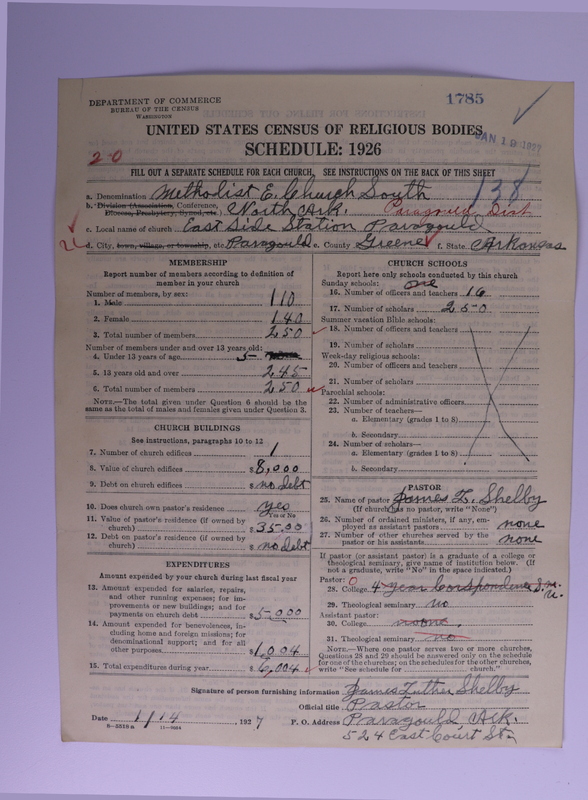 DEPARTMENT OF COMMERCE
BUREAU OF THE CENSUS
WASHINGTON
1785
UNITED STATES CENSUS OF RELIGIOUS BODIES
JAN 19 1927
SCHEDULE: 1926
2-0
FILL OUT A SEPARATE SCHEDULE FOR EACH CHURCH. SEE INSTRUCTIONS ON THE BACK OF THIS SHEET
a. Denomination Methodist E. Church South 138
b. Division (Association, Conference, Diocese, Presbytery, Synod, etc.) North Ark. Paragould Dist
c. Local name of church East Side Station Paragould
d. City, town, village, or township, etc. Paragould e. County Greene f. State Arkansas
MEMBERSHIP
Report number of members according to definition of member in your church
Number of members, by sex:
1. Male 110
2. Female 140
3. Total number of members 250
Number of members under and over 13 years old:
4. Under 13 years of age 5
5. 13 years old and over 245
6. Total number of members 250
NOTE.—The total given under Question 6 should be the
same as the total of males and females given under Question 3.
CHURCH BUILDINGS
See instructions, paragraphs 10 to 12
7. Number of church edifices 1
8. Value of church edifices $ 8,000
9. Debt on church edifices $ no debt
10. Does church own pastor's residence? yes
Yes or No
11. Value of pastor's residence (if owned by
church) $ 35.00
12. Debt on pastor's residence (if owned by
church) $ no debt
EXPENDITURES
Amount expended by your church during last fiscal year
13. Amount expended for salaries, repairs,
and other running expenses; for im-
provements or new buildings; and for
payments on church debt $ 5,000
14. Amount expended for benevolences, in-
cluding home and foreign missions; for
denominational support; and for all
other purposes $ 1,004
15. Total expenditures during year $ 6,004
CHURCH SCHOOLS
Report here only schools conducted by this church
Sunday schools: one
16. Number of officers and teachers 16
17. Number of scholars 250
Summer vacation Bible schools:
18. Number of officers and teachers
19. Number of scholars
Week-day religious schools:
20. Number of officers and teachers
21. Number of scholars
Parochial schools:
22. Number of administrative officers
23. Number of teachers—
a. Elementary (grades 1 to 8)
b. Secondary
24. Number of scholars—
a. Elementary (grades 1 to 8)
b. Secondary
PASTOR
25. Name of pastor James L. Shelby
(If church has no pastor, write "None")
26. Number of ordained ministers, if any, em-
ployed as assistant pastors none
27. Number of other churches served by the
pastor or his assistants none
If pastor (or assistant pastor) is a graduate of a college or
theological seminary, give name of institution below. (If
not a graduate, write "No" in the space indicated.)
Pastor: 0
28. College 4 year Correspondence S.M.U.
29. Theological seminary no
Assistant pastor:
30. College none
31. Theological seminary no
NOTE.—Where one pastor serves two or more churches,
Questions 28 and 29 should be answered only on the schedule
for one of the churches; on the schedules for the other churches,
write "See schedule for church."
Signature of person furnishing information James Luther Shelby
Official title Pastor
Date 1/14, 1927 P. O. Address Paragould, Ark.
8-5518a 11-9064 524 East Court St